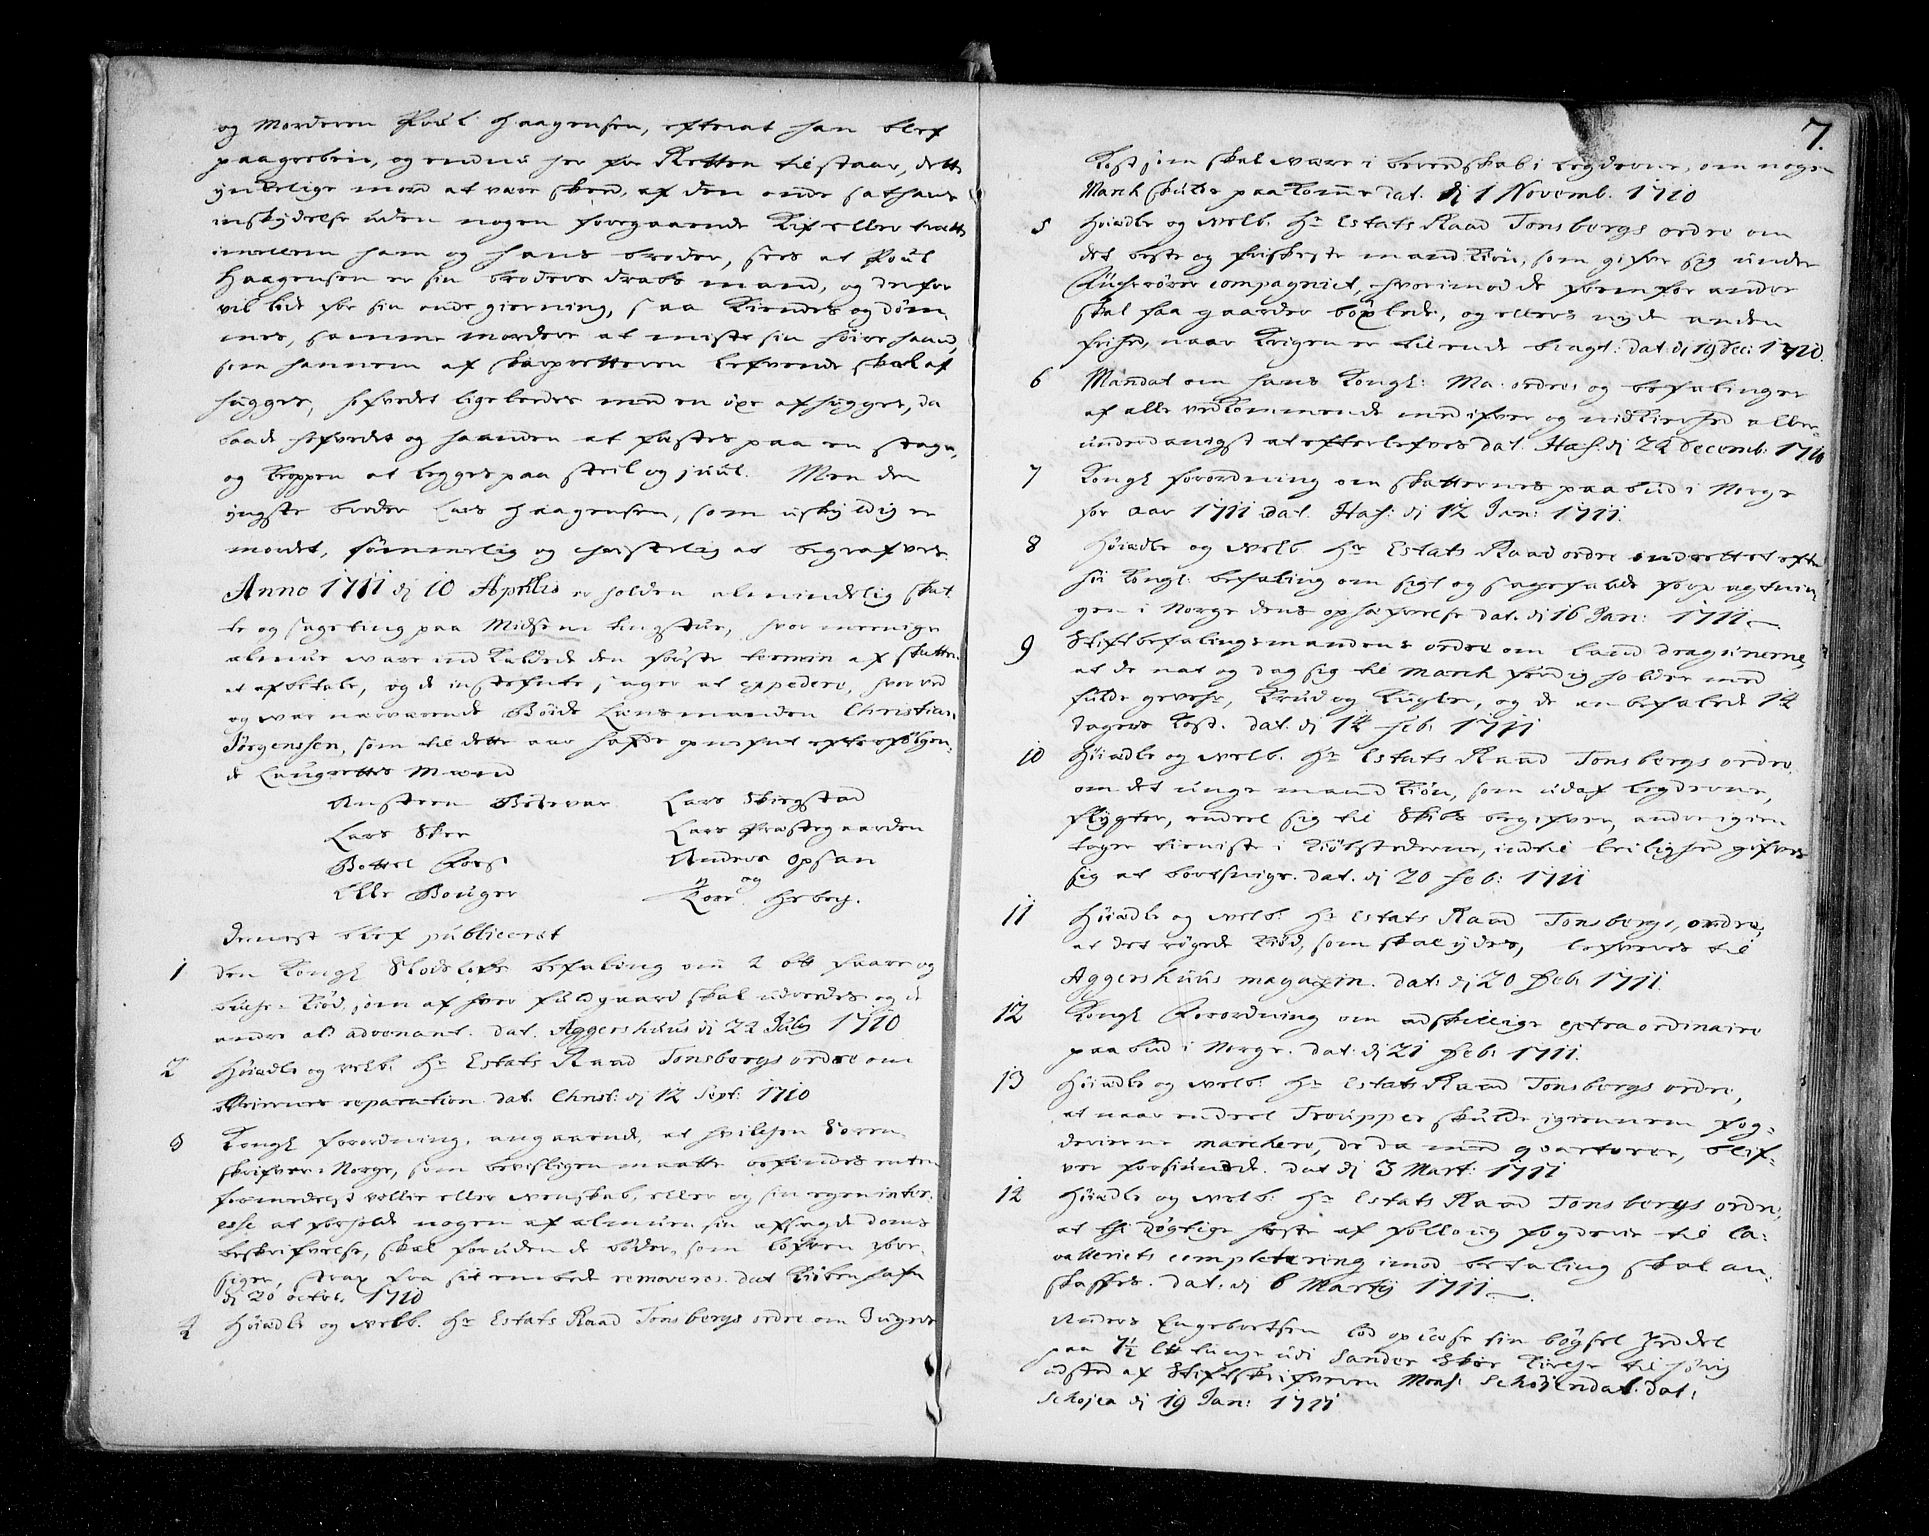 og Morderen Poul Haagensen, efterat han blef
paagreben, og endnu her for Retten tilstaar, dette
ynkelige mord at være skeed, af den onde sathans
indskydelse uden nogen foregaaende Kif eller trætte
imellem ham og hans broder, sees at Poul
Haagensen er sin broders drabs mand, og derfor
vel bør for sin onde gierning, saa Kiendes og døm-
mes, samme mordere at miste sin høire haand,
som hannem af skarpretteren Lefvende skal af
hugges, hofvedet ligeledes med en øxe afhugges, da
baade hofvedet og haanden at fæstes paa en stage,
og Kroppen at legges paa steil og juul. Men den
yngste broder Lars Haagensen, som uskyldig er
mordet, sømmelig og christelig at begrafves.
Anno 1711 dj 10 Aprilis er holden almindelig skat-
te og sageting paa Midsem tingstue, hvor meenige
almue ware ind Kaldede den første termin af skatten
at afbetale, og de instefnte sager at expedere, hvorved
og war nærværende Bøide Lensmanden Christian
Jörgenssen, som til dette aar hafde opnefnt efterfølgen-
de Laugrettes Mænd
Austeen Bölevar Lars Skiegstad
Lars Skee Lars Præstegaarden
Bottel Foss Anders Opsan
Elle Bouger og Tore Heberg.
dernest blef publiceret
1 den Kongl Slodslofs befaling om 2 bt faare og
bucke Kiød, som af hver fuldgaard skal udreedes og de
andre ald advenant. dat. Aggershuus dj 22 July 1710
2 Höiædle og velb: Hr Estats Raad Tonsbergs ordre om
veiernes reparation dat. Christ: dj 12 Sept: 1710
3 Kongl forordning, angaaende, at hvilchen Soren-
skrifver i Norge, som bevisligen maatte befindes enten
formedelst vellie eller Wenskab, eller og sin egen inter-
esse at forholde nogen af almuen sin afsagde doms
beskrifvelse, skal foruden de böder, som lofven ybre-
siger, strax fra sit embede removeres. dat Kiöbenhafn
dj 20 octbr. 1710
4 Höiædle og Welb. Hr Estats Raad Tonsbergs ordre om 3 ugers
7.
Kost som skal være i beredskab i legderne, om nogen
March skulde paa Komme dat. dj 1 Novemb. 1710
5 Höiædle og Welb. Hr Estats Raad Tonsbergs ordre om
det beste og friskeste mand Kiön, som gifver sig under
compagniet, hvorimod de fremfor andre
skal faa gaarder böxlede, og ellers nyde anden
frihed, naar Krigen er til ende bragt. dat. dj 19 Dec: 1710.
6 Mandat om hans Kongl: Ma. ordres og befalinger
af alle vedkommende med ifver og nidkierhed aller-
underdanigst at efterlefves dat. Haf: dj 22 Decemb. 1710
7 Kongl forordning om skatternes paabud i Norge
for aar 1711 dat. Haf: dj 12 Jan: 1711.
8 Höiædle og Welb. Hr Estats Raad ordre underettet efter
sin Kongl: befaling om sigt og sagefalds forpagtnin-
gen i Norge dens ophæfvelse dat. dj 16 Jan: 1711.
9 Stiftbefalingsmandens ordre om land dragunerne,
at de nat og dag sig til March færdig holder med
fulde gevehr, Krud og Kugler, og de anbefalede 14
dagers Kost. dat. dj 14 feb: 1711
10 Höiædle og Welb. Hr Estats Raad Tonsbergs ordre.
om det unge mand Kiön, som udaf legderne,
flygter, endeel sig til Skibs begifver, andre igien
tager tieniste i Kiöbstederne, indtil leilighed gifves
sig at bortsnige. dat. dj 20 feb: 1711
11 Höiædle og Welb: Hr Estats Raad Tonsbergs, ordre,
at det rögede Kiöd, som skal ydes, lefveres til
Aggershuus magazin. dat: dj 20 Feb: 1711.
12 Kongl Forordning om adskillige extraordinaire
paabud i Norge. dat: dj 21 Feb: 1711.
13 Höiædle og Welb: Hr Estats Raad Tonsbergs ordre,
at naar endeel Troupper skulde igiennem fog-
derierne marchere, de da med qvarterer, blif-
ver forsiunede. dat dj 3 Mart: 1711
12 Höiædle og Welb: Hr Estats Raad Tonsbergs ordre,
at thi dögtige heste af folloug fogderie til ca-
valleriets completering imod betaling skal an-
skaffes. dat. dj 6 Martij 1711.
Anders Engebretsen lod oplæse sin böysel Zeddel
paa 1½ Lb tunge udi Sander Skee Kirche til hörig
udsted af Stiftskrifveren Mons: Schöjendal. dat:
Schojea dj 19 Jan: 1711